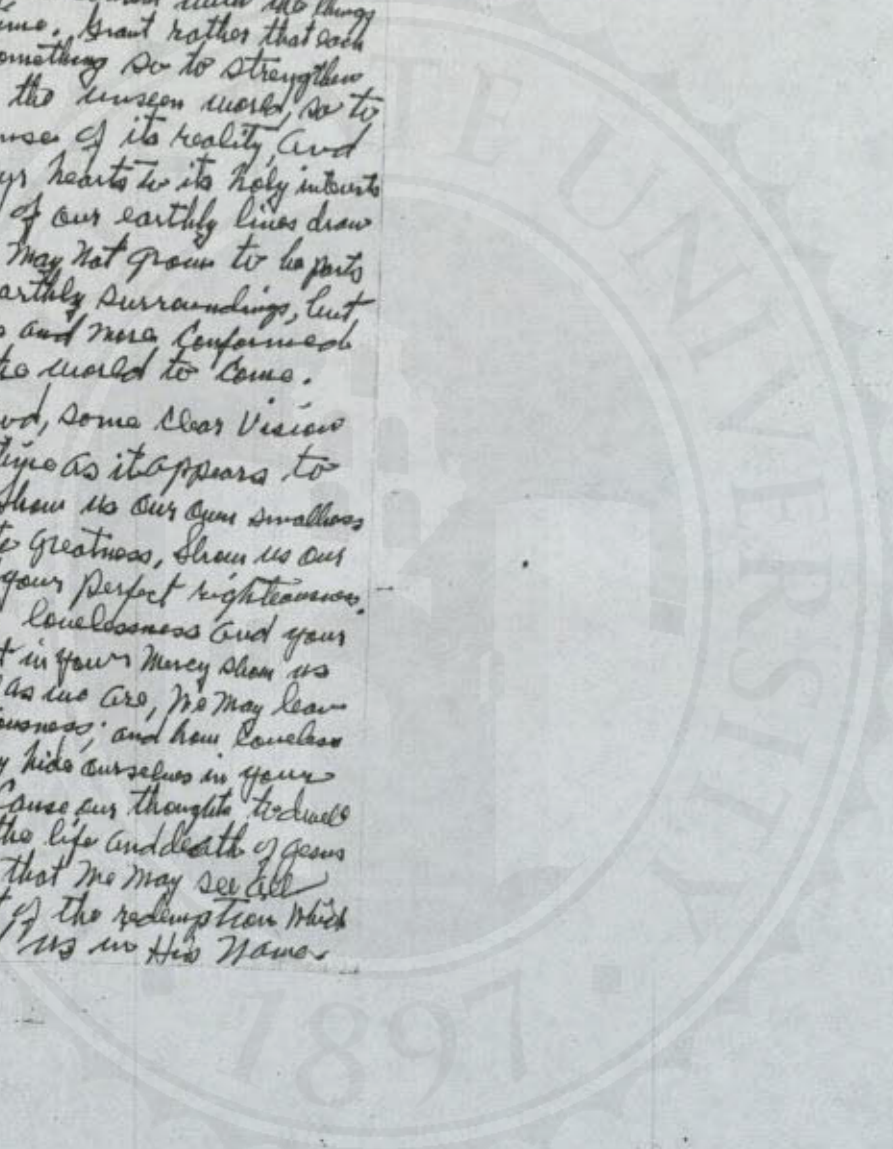 the things
me. Grant rather that each
omething so to strengthen
the unseen world, so to
nse of its reality, and
ur hearts to its holy interests
of our earthly lives draw
may not grow to be parts
arthly surroundings, but
and more conformed
he world to come.
od, some clear vision
time as it appears to
Show us our own smallness
te greatness, show us our
your perfect righteousness.
lovelessness and your
t in your mercy show us
as we are, we may lean
ousness; and how loveless
y hide ourselves in your
Cause our thoughts to dwell
the life and death of Jesus
that we may see all
t of the redemption which
us in His Name.
TE UNIVERSITY
1897